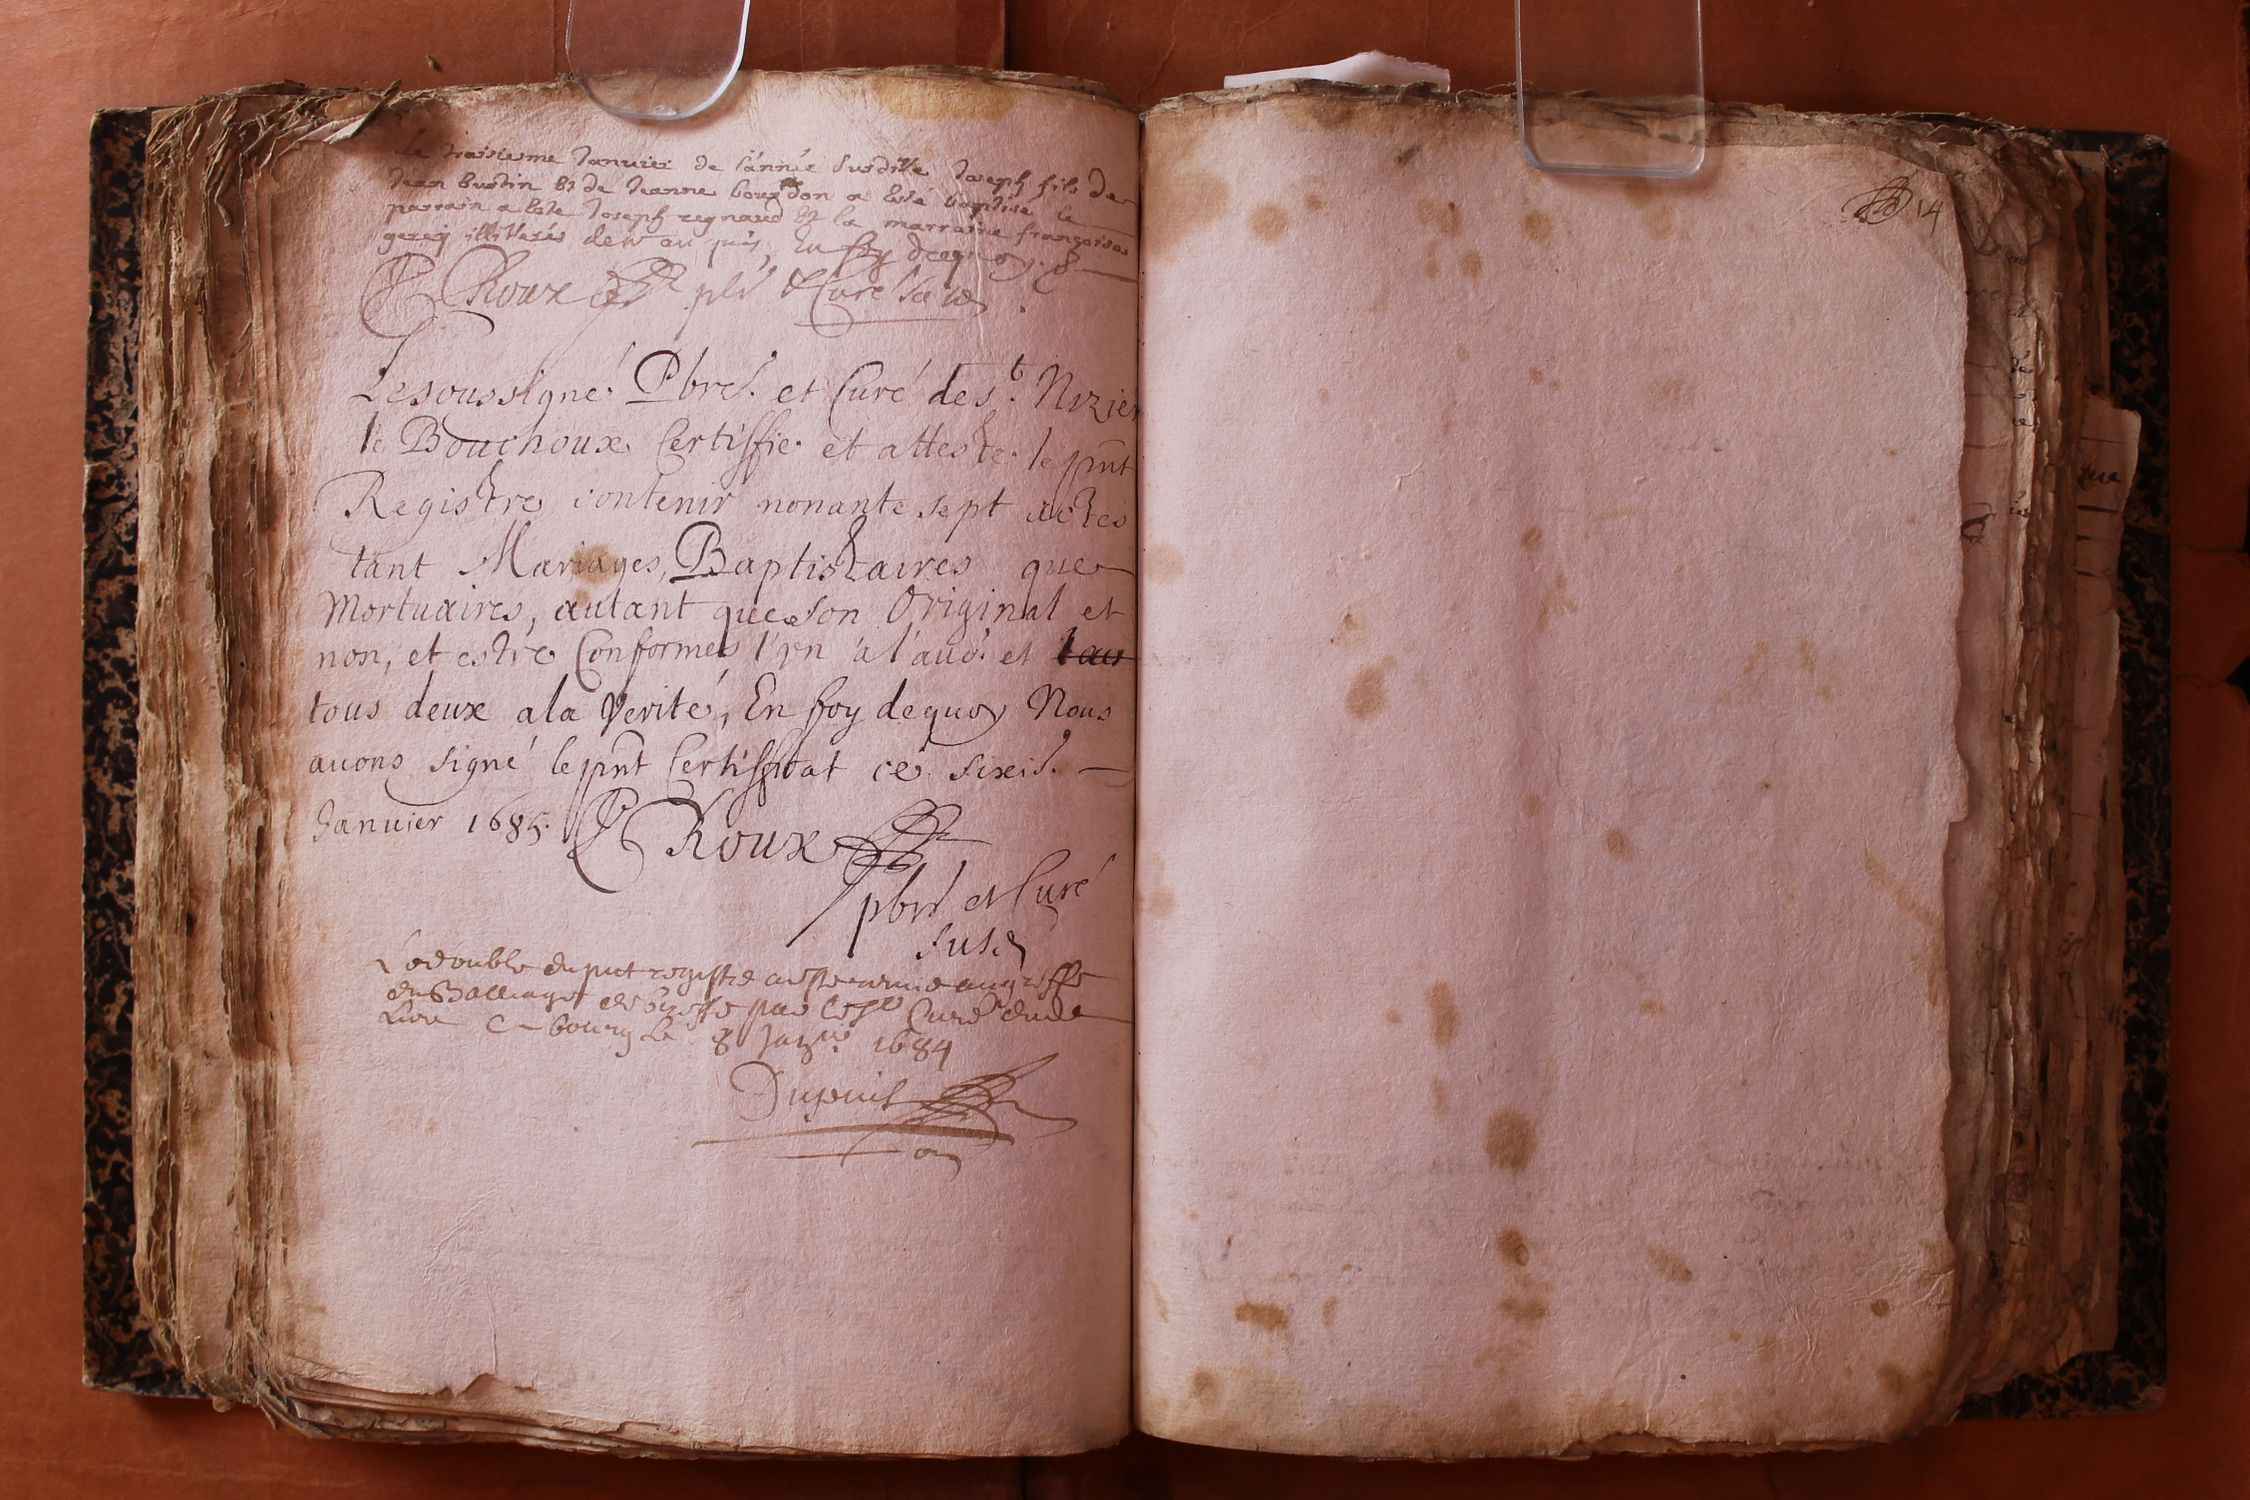 Le troisieme Janvier de l'année susditte Joseph fils de
Jean bustin et de Jeanne bourdon a esté baptisé le
parrain a este Joseph regnaud et la marraine françoise
illitérés de ce enquis, En foy dequoy.
Roux pbr et Curé
Le soussigné Pbre. et Curé de St. Nizier
le Bouchoux Certiffie et atteste le pnt
Registre contenir nonante sept actes
tant Mariages, Baptistaires que
Mortuaires, autant que son Original et
non, et estre Conformes l'vn à l'au. et
tous deux a la Verité, En foy dequoy Nous
auons signé le pnt Certifficat ce sixie.
Januier 1685. Roux
pbr et Curé
susd
Le double du pnt registre a esté remis au greffe
du Balliage de bresse par le Sr Curé dud
Lieu A bourg le 8 Janr. 1684
Dupuis
14